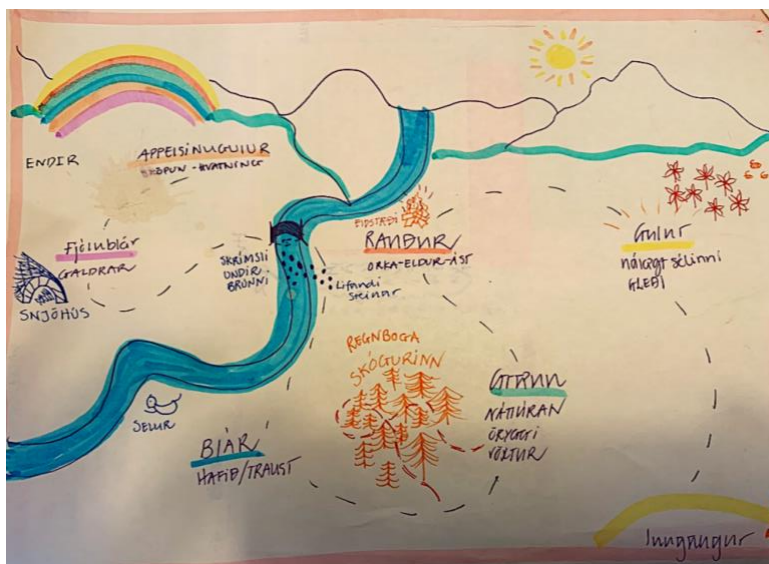 ENDIR
APPELSINUGULUR
SKÖPUN - HVATNING
Fjólublár
GALDRAR
SNJÓHÚS
SKRÍMSLI
UNDIR
BRÚNNI
Lifandi
Steinar
ELDSTÆÐI
RAUÐUR
ORKA-ELDUR-ÁST
GULUR
nálægt sólinni
GLEÐI
REGNBOGA
SKÓGURINN
GRÆNN
NÁTTÚRAN
ÖRYGGI
VÖXTUR
SELUR
BLÁR
HAFIÐ/TRAUST
Inngangur